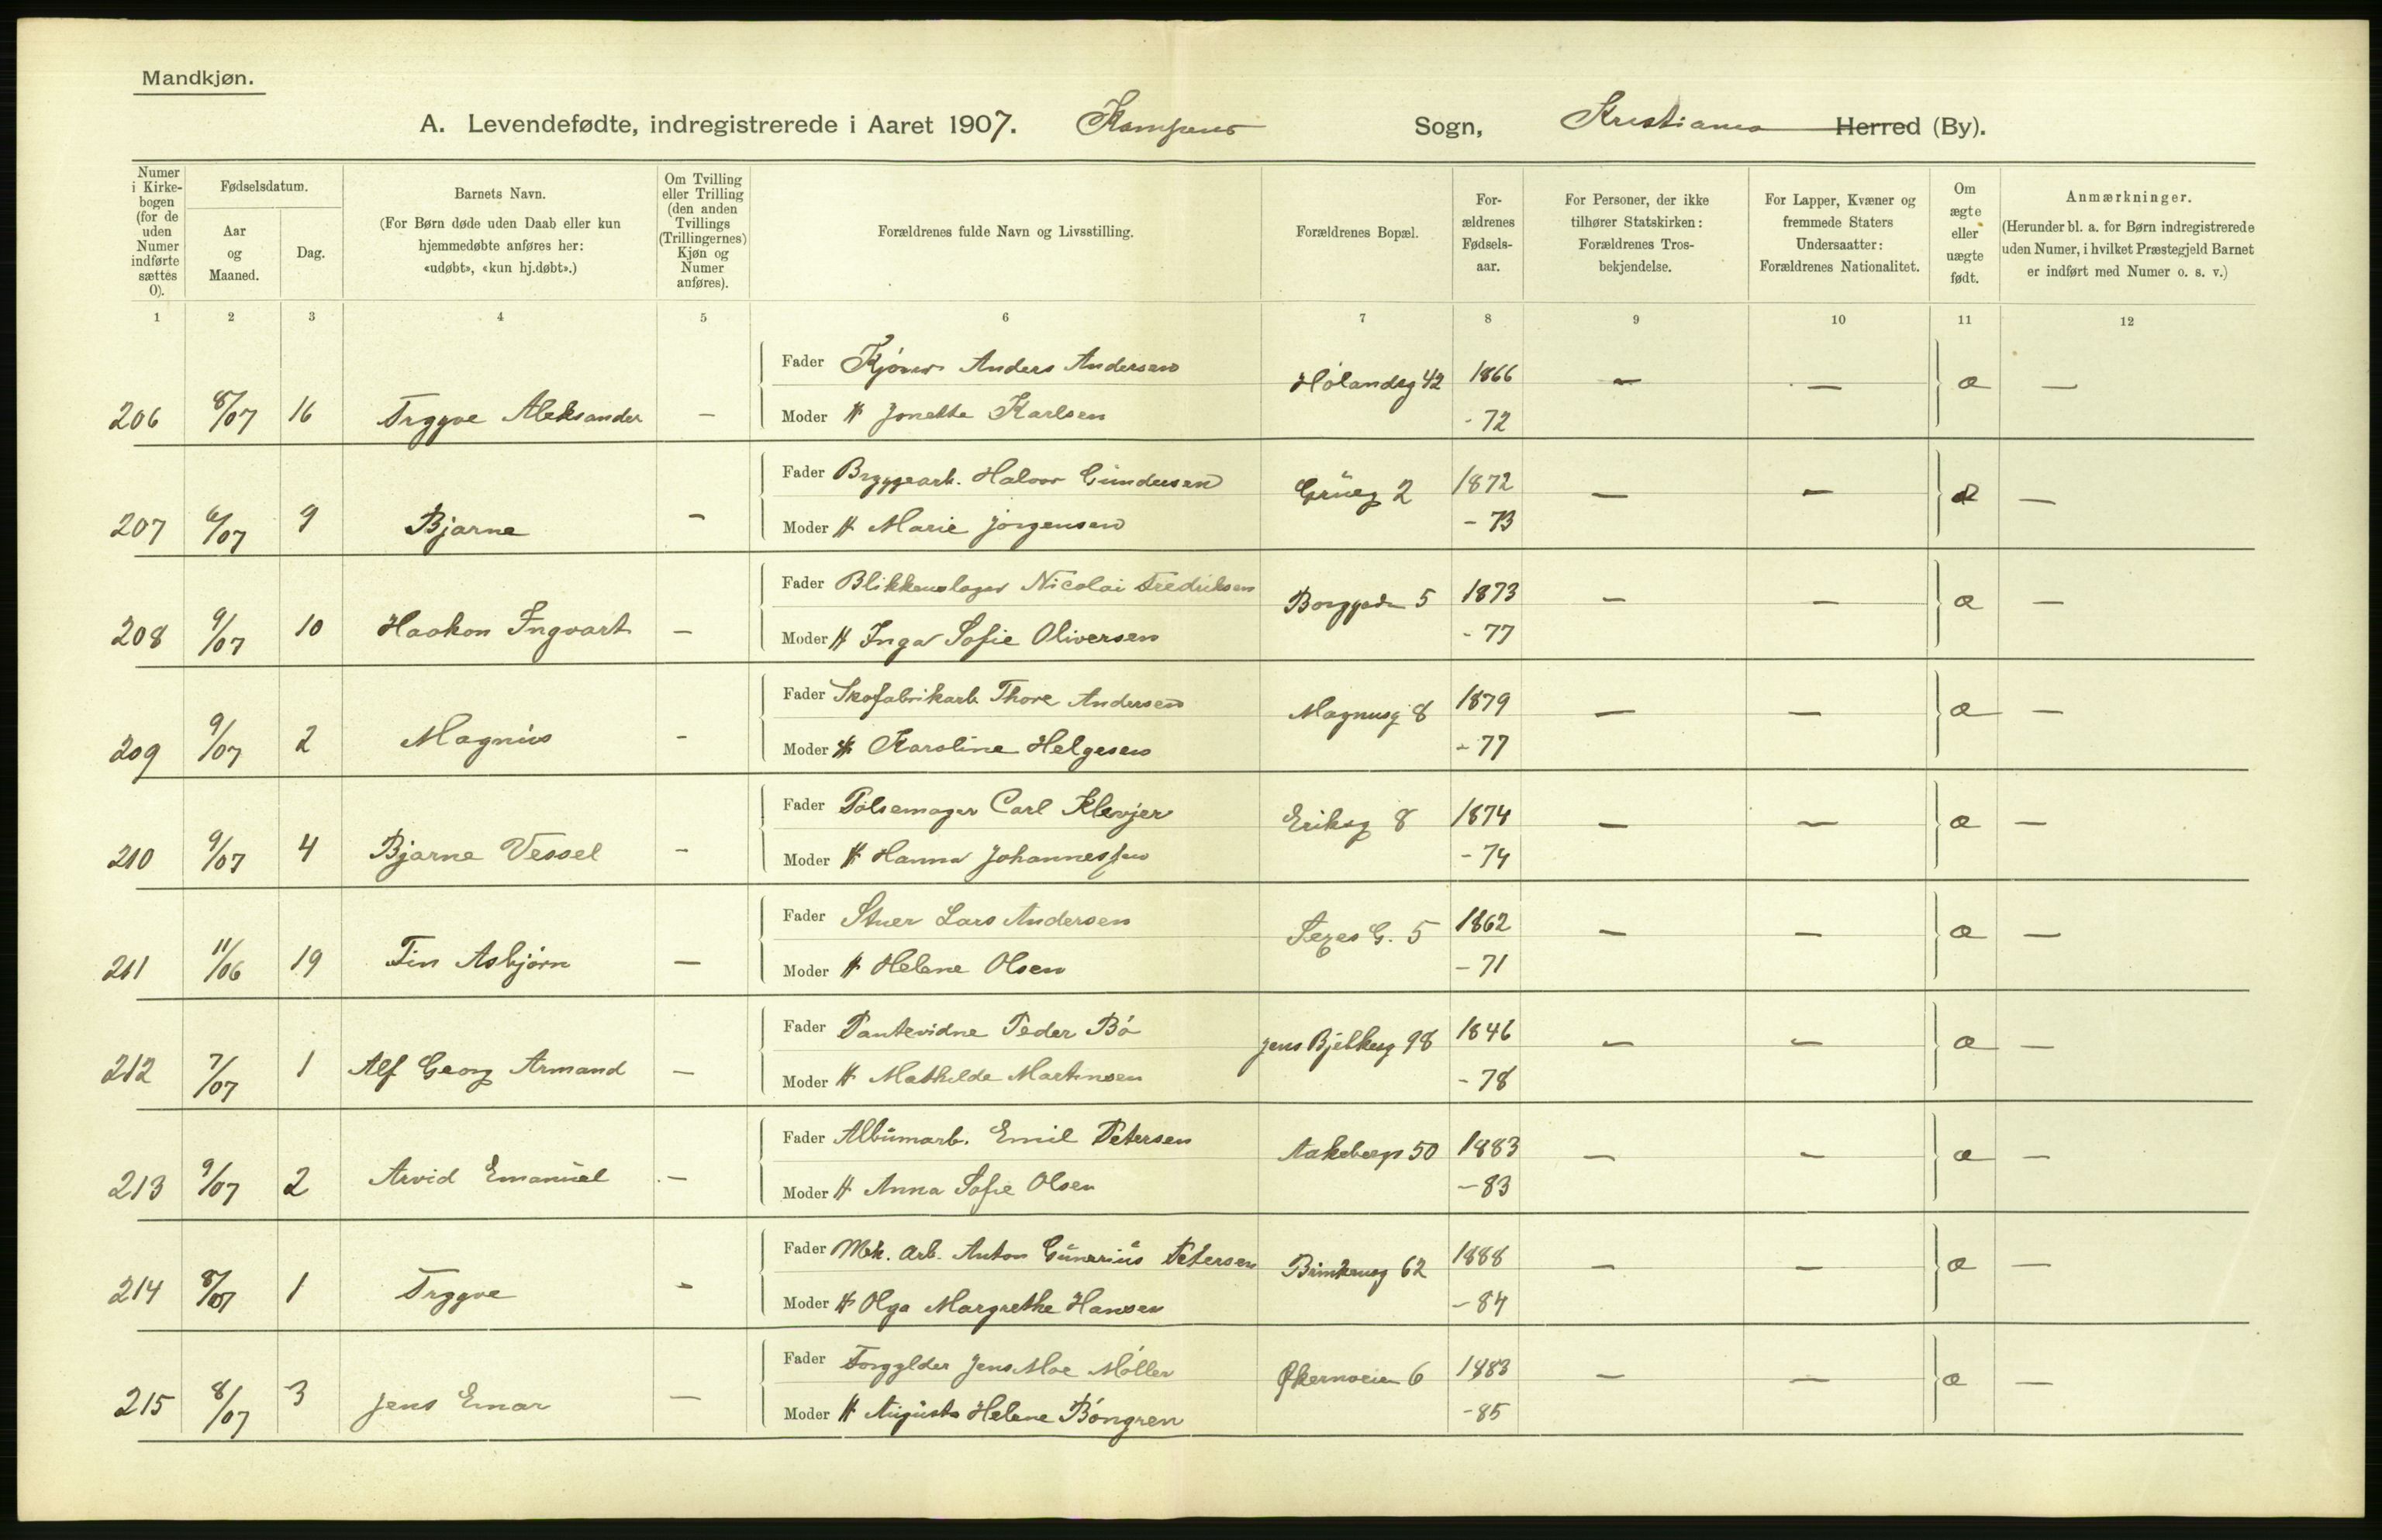 Mandkjøn.
A. Levendefødte, indregistrerede i Aaret 1907. Kampens Sogn, Kristiania Herred (By).
Numer i Kirkebogen (for de uden Numer indførte sættes 0).
Fødselsdatum.
Aar og Maaned.
Dag.
Barnets Navn.
(For Børn døde uden Daab eller kun hjemmedøbte anføres her: «udøbt», «kun hj.døbt».)
Om Tvilling eller Trilling (den anden Tvillings (Trillingernes) Kjøn og Numer anføres).
Forældrenes fulde Navn og Livsstilling.
Forældrenes Bopæl.
Forældrenes Fødselsaar.
For Personer, der ikke tilhører Statskirken: Forældrenes Trosbekjendelse.
For Lapper, Kvæner og fremmede Staters Undersaatter: Forældrenes Nationalitet.
Om ægte eller uægte født.
Anmærkninger.
(Herunder bl. a. for Børn indregistrerede uden Numer, i hvilket Præstegjeld Barnet er indført med Numer o. s. v.)
1 2 3 4 5 6 7 8 9 10 11 12
Fader Kjører Anders Andersen Hølandsg 42 1866 — — æ —
206 8/07 16 Trygve Aleksander — Moder H Jonette Karlsen -72
Fader Bryggearb. Halvor Gundersen Grüeg 2 1872 — — æ —
207 6/07 9 Bjarne — Moder H Marie Jørgensen -73
Fader Blikkenslager Nicolai Fredriksen Borggaden 5 1873 — — æ —
208 9/07 10 Haakon Ingvart — Moder H Inga Sofie Oliversen -77
Fader Skofabrikarb. Thore Andersen Magnusg 8 1879 — — æ —
209 9/07 2 Magnus — Moder H Karoline Helgesen -77
Fader Pølsemager Carl Klevjer Eriksg 8 1874 — — æ —
210 9/07 4 Bjarne Vessel — Moder H Hanna Johannessen -74
Fader Stuer Lars Andersen 5 1862 — — æ —
211 11/06 19 Fin Asbjørn — Moder H Helene Olsen -71
Fader Pantevidne Peder Bø Jens Bjelkesg 98 1846 — — æ —
212 7/07 1 Alf Georg Armand — Moder H Mathilde Martinsen -78
Fader Albumarb. Emil Petersen Aakebergv 50 1883 — — æ —
213 9/07 2 Arvid Emanuel — Moder H Anna Sofie Olsen -83
Fader Mek. Arb. Anton Gunerius Petersen Brinkeng 62 1888 — — æ —
214 8/07 1 Trygve — Moder H Olga Margrethe Hansen -84
Fader Forgylder Jens Moe Møller Økernveien 6 1883 — — æ —
215 8/07 3 Jens Einar — Moder H Augusta Helene Bøngren -85